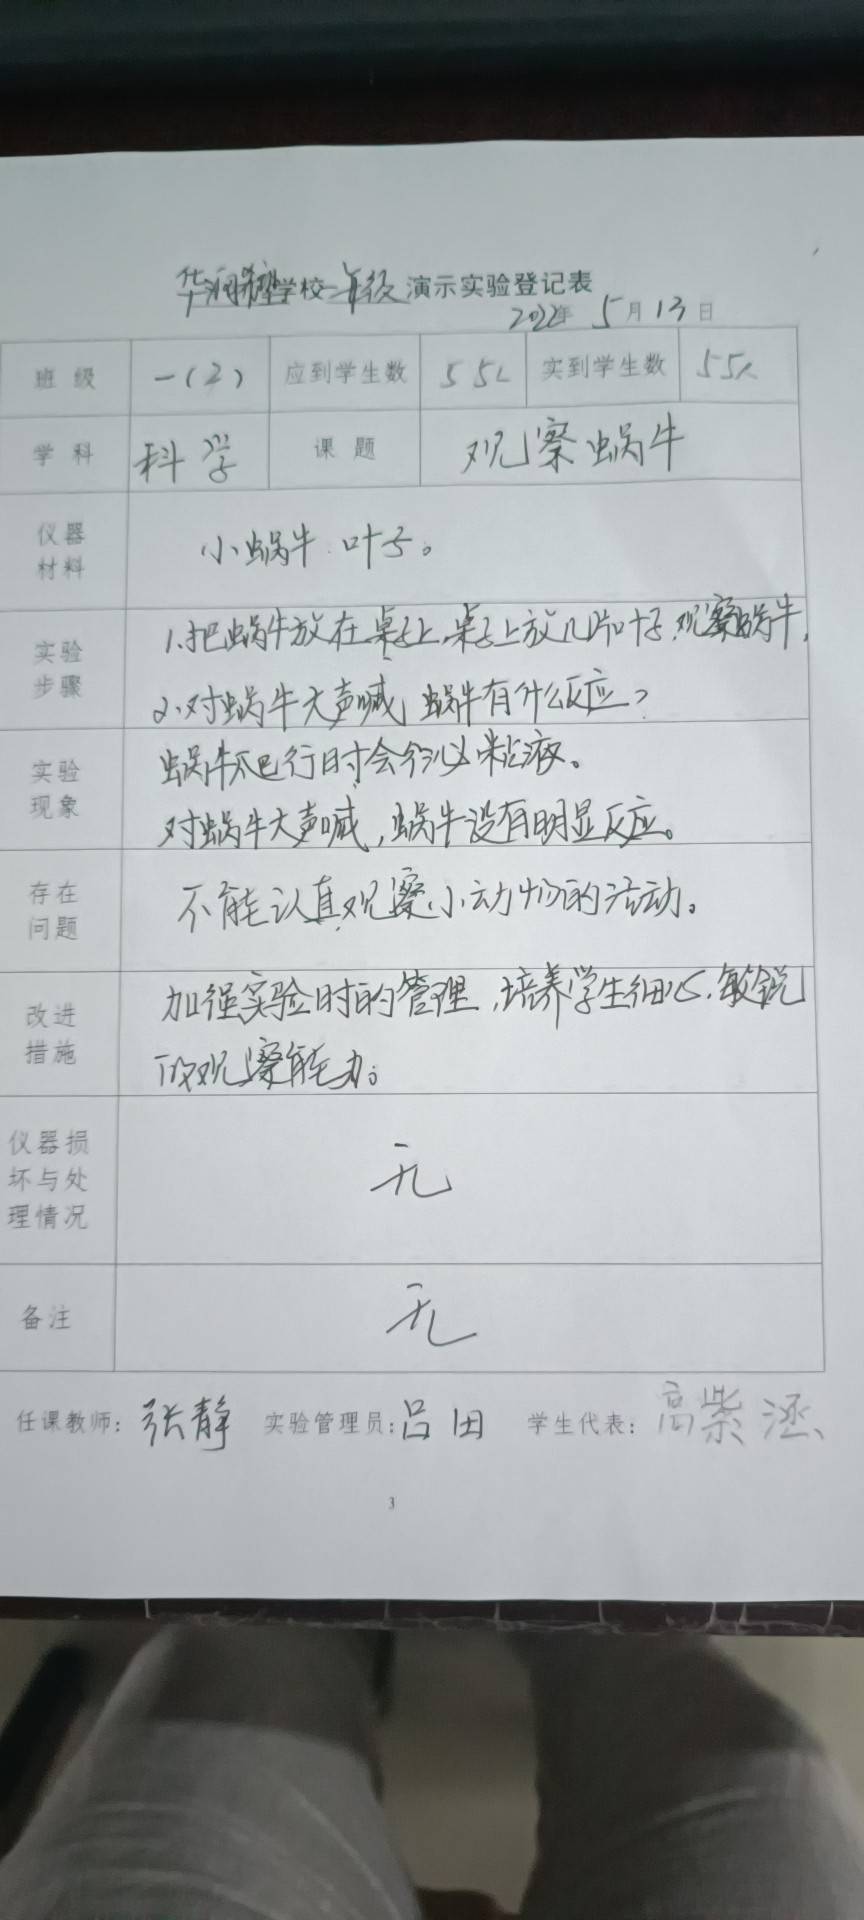 华润希望学校一年级演示实验登记表
2022年 5月13日
班级 一(2) 应到学生数 55人 实到学生数 55人
学科 科学 课题 观察蜗牛
仪器材料 小蜗牛 叶子。
实验步骤 1.把蜗牛放在桌子上,桌子上放几片叶子,观察蜗牛,
2.对蜗牛大声喊,蜗牛有什么反应?
实验现象 蜗牛爬行时会分泌粘液。
对蜗牛大声喊,蜗牛没有明显反应。
存在问题 不能认真观察小动物的活动。
改进措施 加强实验时的管理,培养学生细心,敏锐
的观察能力。
仪器损坏与处理情况 无
备注 无
任课教师:张静 实验管理员:吕田 学生代表:高紫涵
3